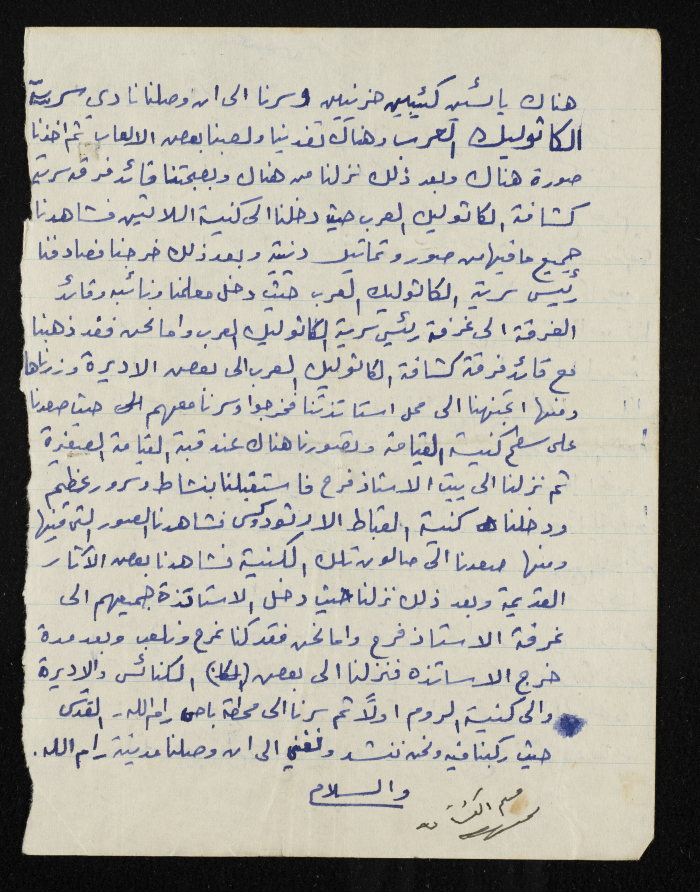 هناك يائسين كئيبين حزنيين وسرنا الى ان وصلنا نادي سرية
الكاثوليك العرب وهناك تغدينا ولعبنا بعض الالعاب ثم اخذنا
صورة هناك وبعد ذلك نزلنا من هناك وبصحبتنا قائد فرقة سرية
كشافة الكاثوليك العرب حيث دخلنا الى كنيسة اللاتين فشاهدنا
جميع ما فيها من صور وتماثيل دينية وبعد ذلك خرجنا فصادفنا
رئيس سرية الكاثوليك العرب حيث دخل معلمنا ونائبه وقائد
الفرقة الى غرفة رئيس سرية الكاثوليك العرب واما نحن فقد ذهبنا
مع قائد فرقة كشافة الكاثوليك العرب الى بعض الاديرة وزرناها
ومنها اتجهنا الى محل استاتذتنا فخرجوا وسرنا معهم الى حيث صعدنا
على سطح كنيسة القيامة وتصورنا هناك عند قبة القيامة الصغيرة
ثم نزلنا الى بيت الاستاذ فرح فاستقبلنا بنشاط وسرور عظيم
ودخلنا كنيسة القباط الارثوذكس فشاهدنا الصور التي فيها
ومنها صعدنا الى صالون تلك الكنيسة فشاهدنا بعض الآثار
القديمة وبعد ذلك نزلنا حيث دخل الاستاتذة جميعهم الى
غرفة الاستاذ فرح واما نحن فقد كنا نمرح ونلعب وبعد مدة
خرج الاساتذه فنزلنا الى بعض الكنائس والاديرة
والى كنيسة الروم اولاً ثم سرنا الى محطة باص رام الله - القدس
حيث ركبنا فيه ونحن ننشد ونغني الى ان وصلنا مدينة رام الله.
والسلام